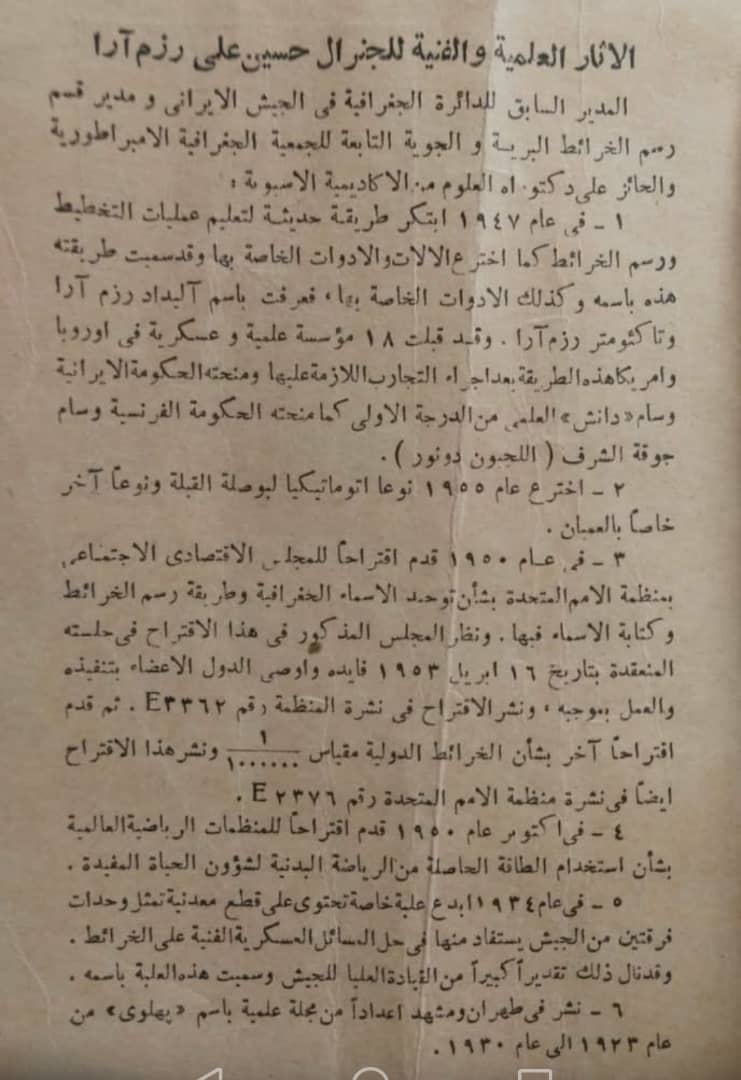 الاثار العلمية والفنية للجنرال حسين على رزم آرا
المدير السابق للدائرة الجغرافية فى الجيش الايرانى و مدير قسم
رسم الخرائط البرية و الجوية التابعة للجمعية الجغرافية الامبراطورية
والحائز على دكتوراه العلوم من الاكاديمية الاسيوية :
١ - فى عام ١٩٤٧ ابتكر طريقة حديثة لتعليم عمليات التخطيط
ورسم الخرائط كما اخترع الالات والادوات الخاصة بها وقد سميت طريقته
هذه باسمه وكذلك الادوات الخاصة بها ، فعرفت باسم آليداد رزم آرا
وتاكئومتر رزم آرا . وقد قبلت ١٨ مؤسسة علمية و عسكرية فى اوروبا
وامريكا هذه الطريقة بعد اجراء التجارب اللازمة عليها ومنحته الحكومة الايرانية
وسام «دانش» العلمى من الدرجة الاولى كما منحته الحكومة الفرنسية وسام
جوقة الشرف ( اللجيون دونور ) .
٢ - اخترع عام ١٩٥٥ نوعا اتوماتيكيا لبوصلة القبلة ونوعاً آخر
خاصاً بالعميان .
٣ - فى عام ١٩٥٠ قدم اقتراحاً للمجلس الاقتصادى الاجتماعى
بمنظمة الامم المتحدة بشأن توحيد الاسماء الجغرافية وطريقة رسم الخرائط
وكتابة الاسماء فيها . ونظر المجلس المذكور فى هذا الاقتراح فى جلسته
المنعقدة بتاريخ ١٦ ابريل ١٩٥٣ فايده واوصى الدول الاعضاء بتنفيذه
والعمل بموجبه ، ونشر الاقتراح فى نشرة المنظمة رقم E٣٣٦٢ . ثم قدم
اقتراحاً آخر بشأن الخرائط الدولية مقياس ١/١٠٠٠٠٠٠ ونشر هذا الاقتراح
ايضاً فى نشرة منظمة الامم المتحدة رقم E ٢٣٧٦ .
٤ - فى اكتوبر عام ١٩٥٠ قدم اقتراحاً للمنظمات الرياضية العالمية
بشأن استخدام الطاقة الحاصلة من الرياضة البدنية لشؤون الحياة المفيدة .
٥ - فى عام ١٩٣٤ ابدع علبة خاصة تحتوى على قطع معدنية تمثل وحدات
فرقتين من الجيش يستفاد منها فى حل المسائل العسكرية الفنية على الخرائط .
وقد نال ذلك تقديراً كبيراً من القيادة العليا للجيش وسميت هذه العلبة باسمه .
٦ - نشر فى طهران ومشهد اعداداً من مجلة علمية باسم «پهلوى» من
عام ١٩٢٣ الى عام ١٩٣٠ .